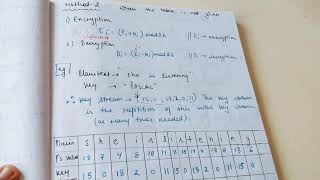 Method-2 When the table is not given
1) Encryption
Ei = (Pi + Ki) mod 26
2) Decryption
Di = (Ei - Ki) mod 26
Eg Plaintext → she is listening
Key → "PASCAL"
∴ Key stream → (15, 0, 18, 2, 0, 11) The key stream
is the repetition of this initial key stream
(as many times needed)
Plain s h e i s l i s t e n i n g
P's value 18 7 4 8 18 11 8 18 19 4 13 8 13 6
Key 15 0 18 2 0 11 15 0 18 2 0 11 15 0